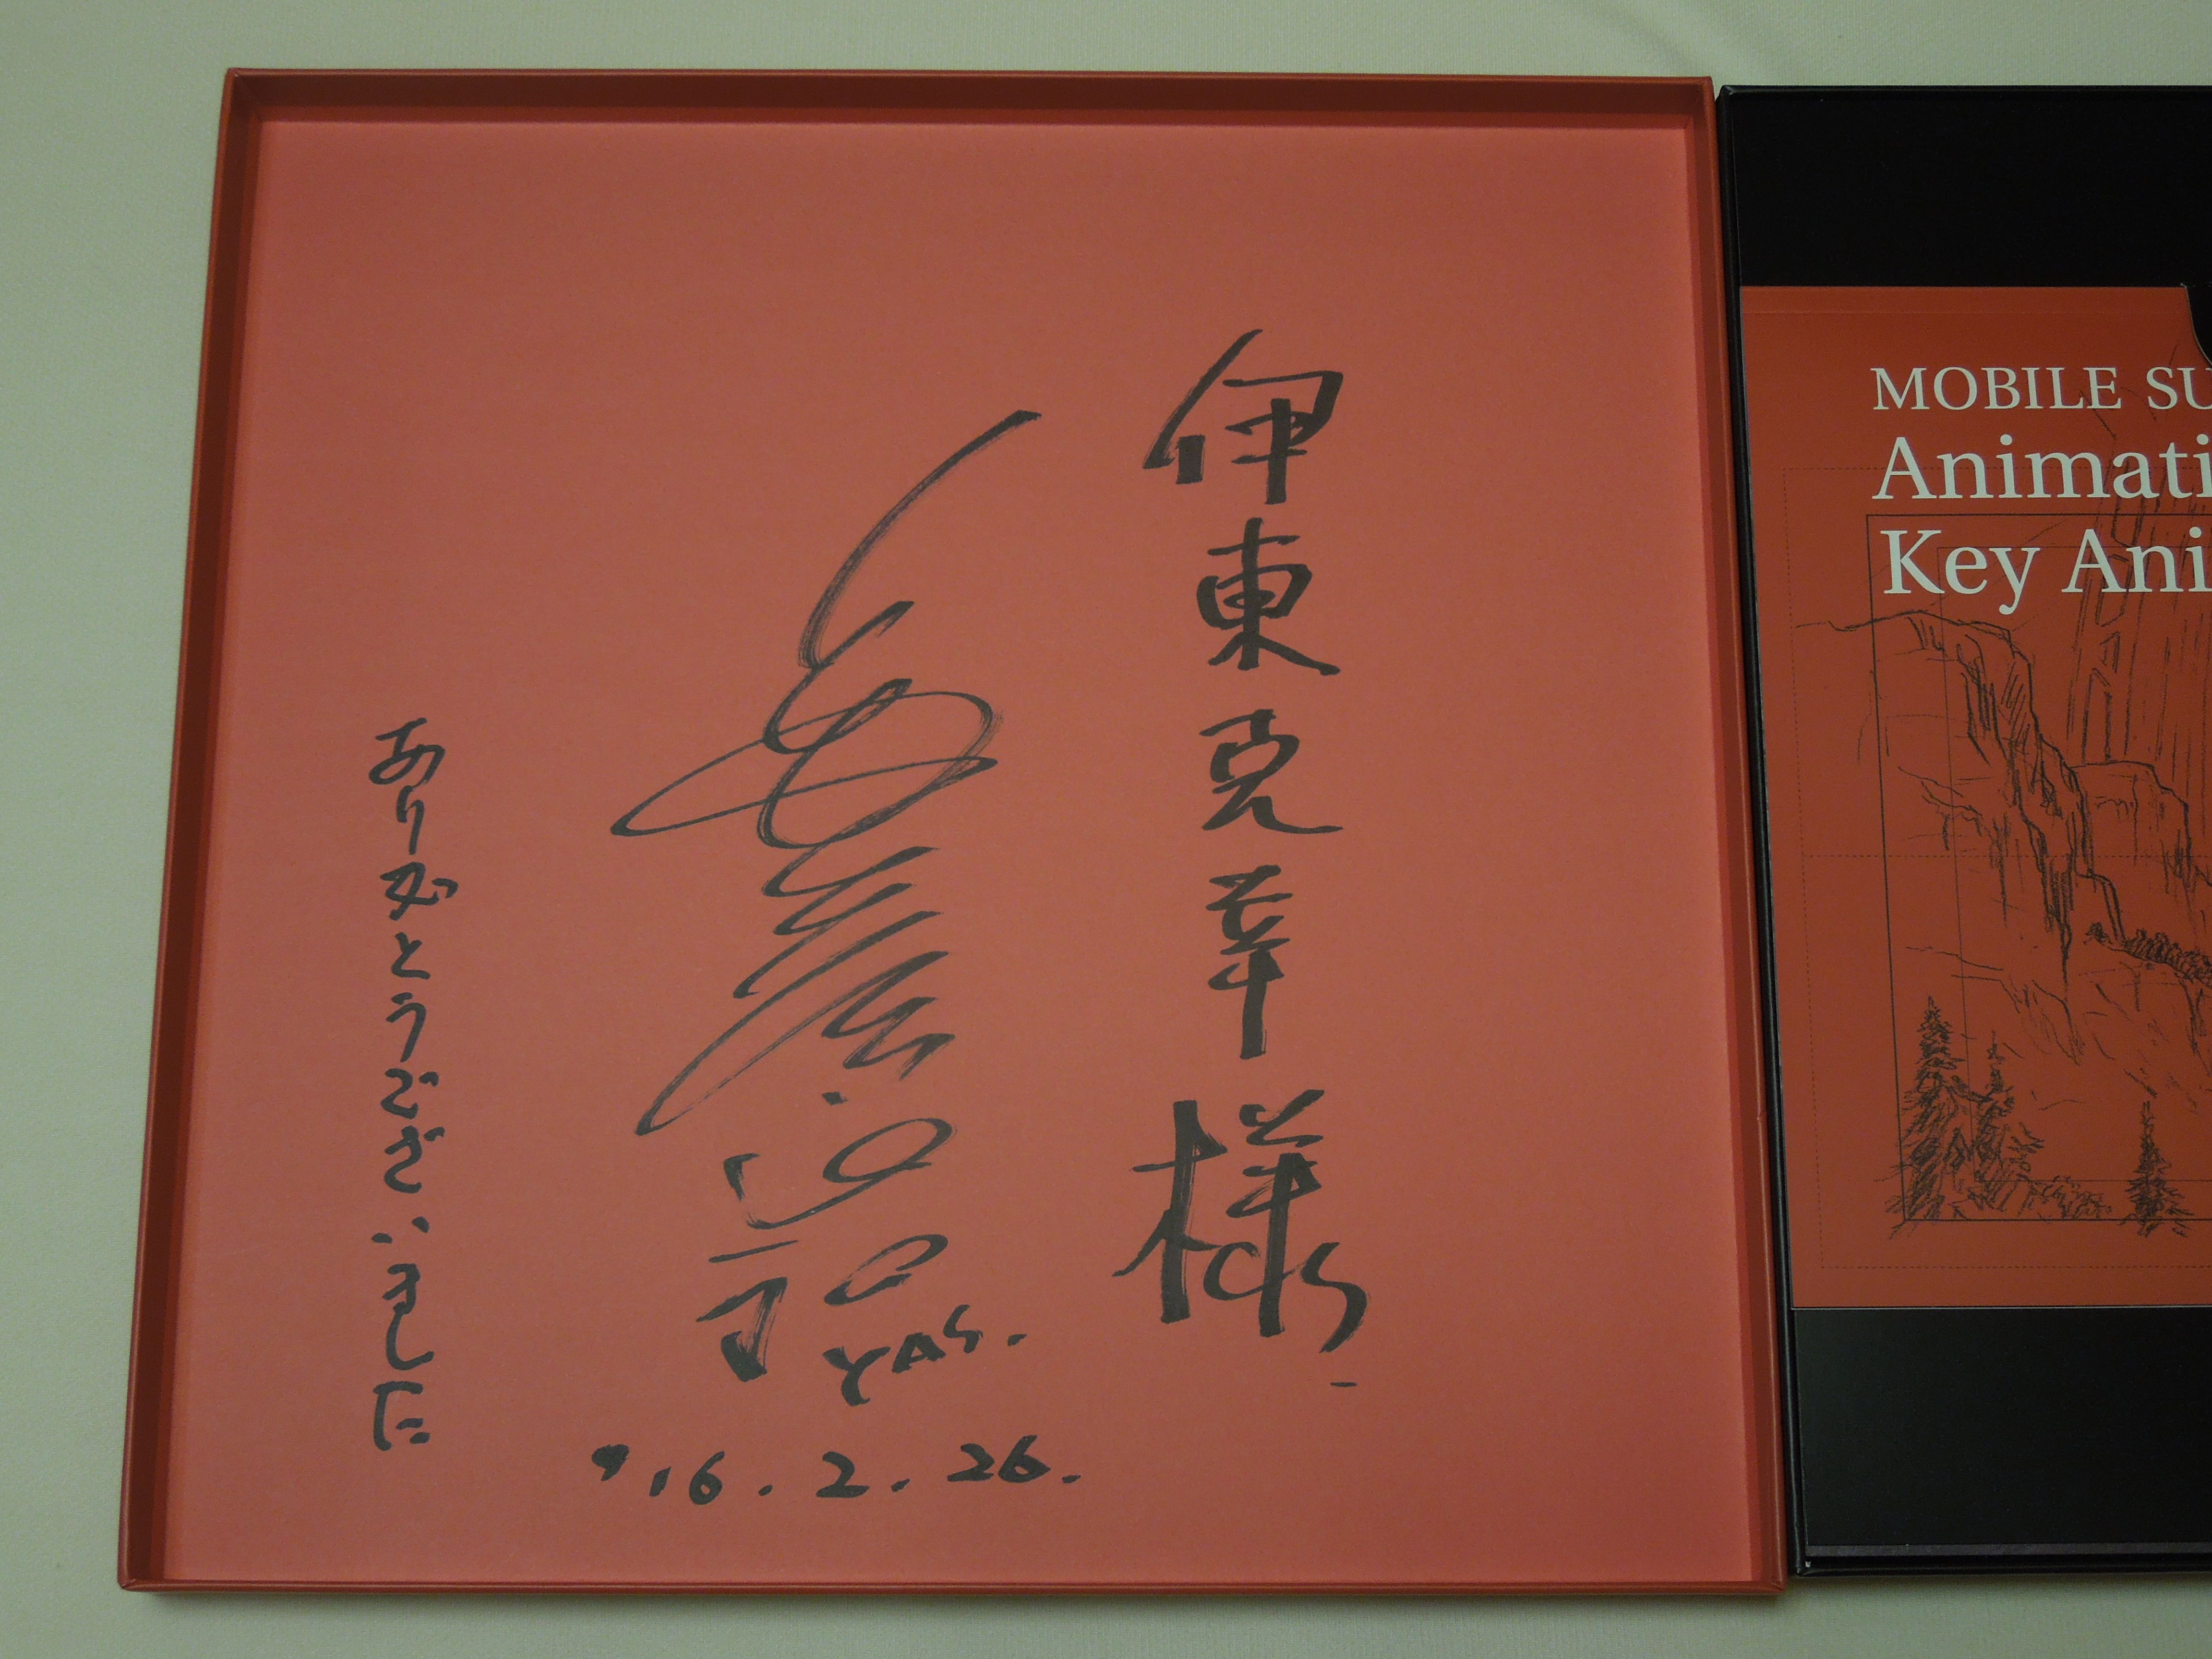 伊東克幸様
安彦良和
YAS.
'16.2.26.
ありがとうございました
MOBILE SU
Animati
Key Ani